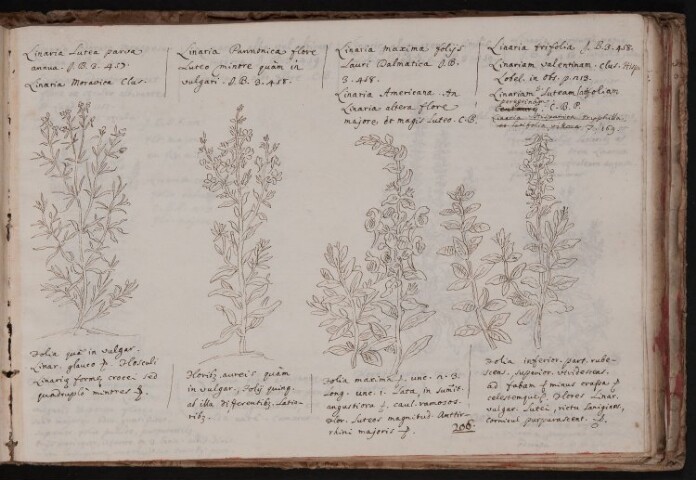 Linaria Lutea parva
annua. J.B. 3. 457.
Linaria Moravica Clus.
Linaria Pannonica flore
Luteo minore quàm in
vulgari. J.B. 3. 458.
Linaria maxima folys
Lauri Dalmatica J.B.
3. 458.
Linaria Americana. An
Linaria altera flore
majore et magis Luteo. C.B.
Linaria trifolia J.B. 3. 458.
Linariam valentinam. Clus. Hisp.
Lobel. in obs. p. 213.
Linariam Luteam latifoliam
peregrinam
C.B.P.
Linaria triphylla
Folia quàm in vulgar.
Linar. glauco Flosculi
Linariæ formæ crocei sed
quadruplò minores
Floribus aureis quàm
in vulgar. folys quinq.
ab illa differentibus. Latio-
ribus.
Folia maxima unc. n. 3.
Long. unc. 1. Lata, in sumit.
angustiora caul. ramosos.
Flor. Luteos magnitud. Antir-
rhini majoris
206
Folia inferior. part. rube-
scens, superior. viridescens.
ad fabam minus crassa
Flores Linar.
vulgar. Lutei, rictu lanigero,
cornicul. purpurascent.